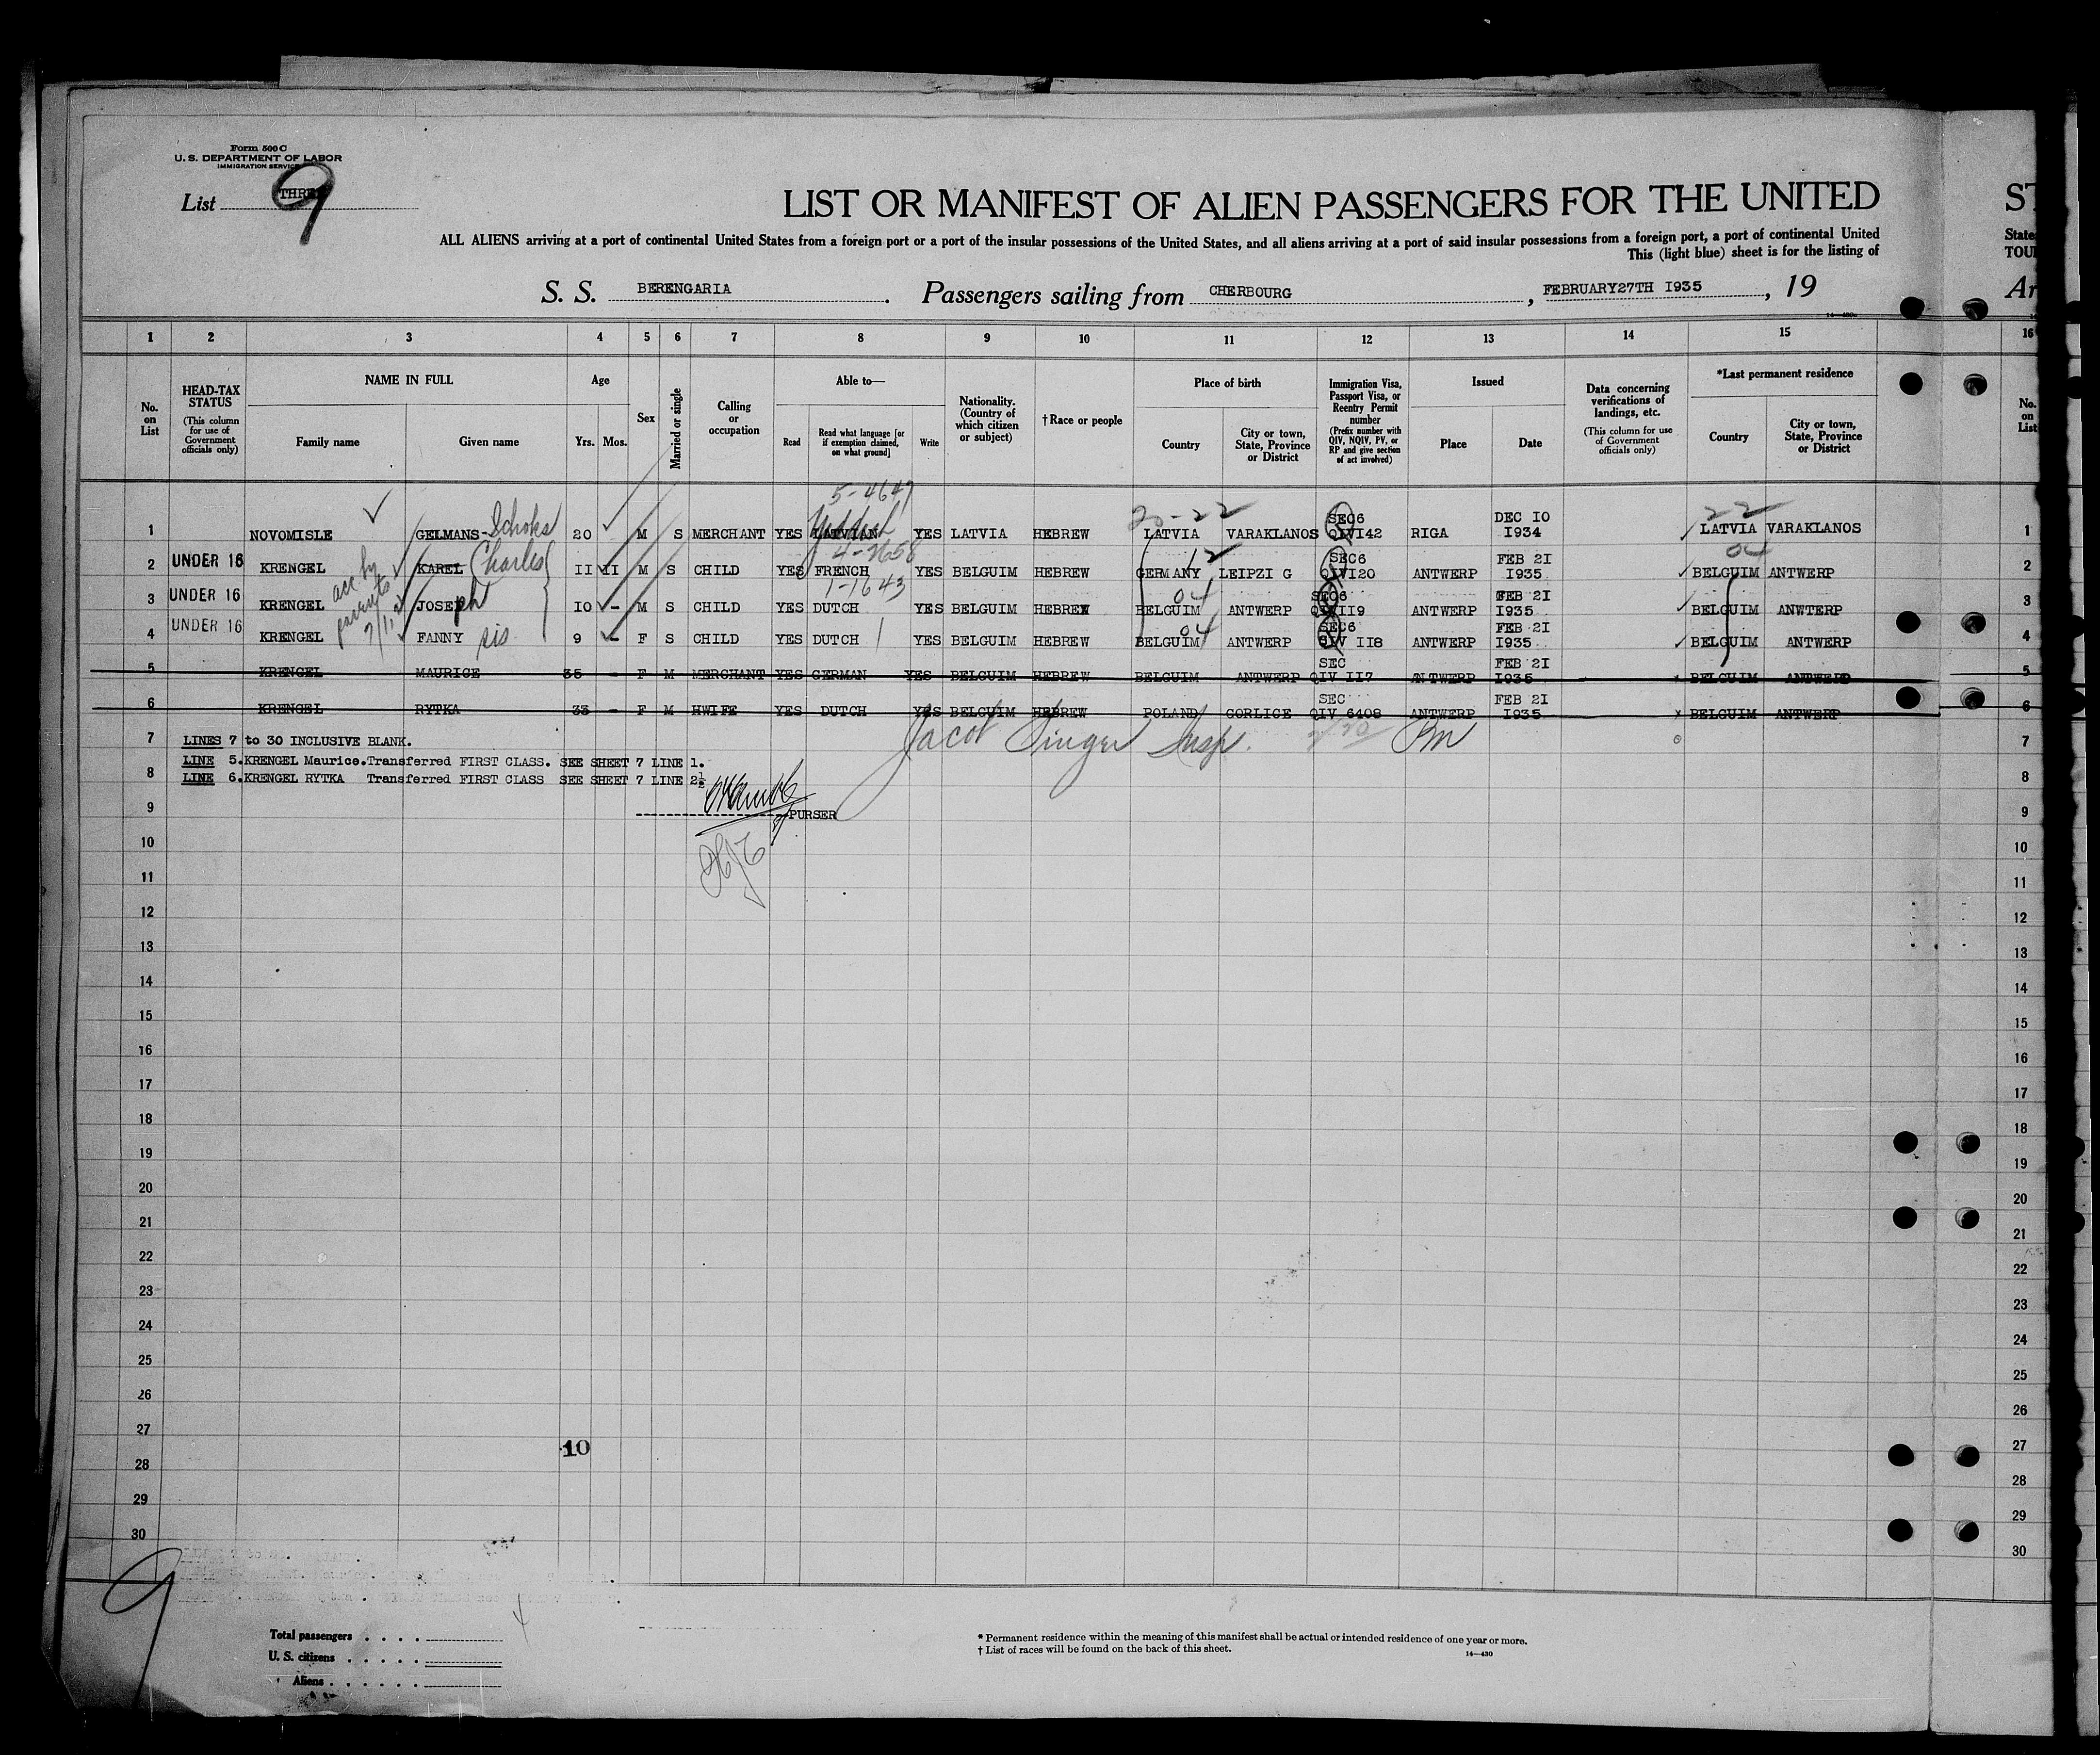 Form 500 C
U. S. DEPARTMENT OF LABOR
IMMIGRATION SERVICE
List THREE 9
LIST OR MANIFEST OF ALIEN PASSENGERS FOR THE UNITED ST
ALL ALIENS arriving at a port of continental United States from a foreign port or a port of the insular possessions of the United States, and all aliens arriving at a port of said insular possessions from a foreign port, a port of continental United State
This (light blue) sheet is for the listing of TOU
S. S. BERENGARIA. Passengers sailing from CHERBOURG, FEBRUARY27TH I935, 19 Ar
1 2 3 4 5 6 7 8 9 10 11 12 13 14 15 16
No. on List
HEAD-TAX STATUS (This column for use of Government officials only)
NAME IN FULL
Family name Given name
Age
Yrs. Mos.
Sex
Married or single
Calling or occupation
Able to—
Read Read what language [or if exemption claimed, on what ground] Write
Nationality. (Country of which citizen or subject)
†Race or people
Place of birth
Country City or town, State, Province or District
Immigration Visa, Passport Visa, or Reentry Permit number (Prefix number with QIV, NQIV, PV, or RP and give section of act involved)
Issued
Place Date
Data concerning verifications of landings, etc. (This column for use of Government officials only)
*Last permanent residence
Country City or town, State, Province or District
No. on List
5-4647
Yiddish 20-22 22
1 NOVOMISLE GELMANS-Schoks 20 M S MERCHANT YES LATVIAN YES LATVIA HEBREW LATVIA VARAKLANOS SEC6 QIVI42 RIGA DEC IO I934 LATVIA VARAKLANOS 1
4-2658 12 04
2 UNDER 16 KRENGEL KAREL (Charles II II M S CHILD YES FRENCH YES BELGUIM HEBREW GERMANY LEIPZI G SEC6 QIVI20 ANTWERP FEB 2I I935 BELGUIM ANTWERP 2
acc by parents
1-1643 04
3 UNDER 16 KRENGEL JOSEph IO - M S CHILD YES DUTCH YES BELGUIM HEBREW BELGUIM ANTWERP SEC6 II9 ANTWERP FEB 2I I935 BELGUIM ANWTERP 3
04
4 UNDER 16 KRENGEL FANNY sis 9 - F S CHILD YES DUTCH YES BELGUIM HEBREW BELGUIM ANTWERP SEC6 QIV II8 ANTWERP FEB 2I I935 BELGUIM ANTWERP 4
5 KRENGEL MAURICE 35 - F M MERCHANT YES GERMAN YES BELGUIM HEBREW BELGUIM ANTWERP SEC QIV II7 ANTWERP FEB 2I I935 BELGUIM ANTWERP 5
6 KRENGEL RYTKA 33 - F M HWIFE YES DUTCH YES BELGUIM HEBREW POLAND GORLICE SEC QIV 6408 ANTWERP FEB 2I I935 x BELGUIM ANTWERP 6
7 LINES 7 to 30 INCLUSIVE BLANK. Jacob Singer Insp. 7
LINE 5.KRENGEL Maurice.Transferred FIRST CLASS. SEE SHEET 7 LINE 1.
8 LINE 6.KRENGEL RYTKA Transferred FIRST CLASS SEE SHEET 7 LINE 2½ 8
9 PURSER 9
10 10
11 11
12 12
13 13
14 14
15 15
16 16
17 17
18 18
19 19
20 20
21 21
22 22
23 23
24 24
25 25
26 26
27 10 27
28 28
29 29
30 30
9
Total passengers
U. S. citizens
Aliens
* Permanent residence within the meaning of this manifest shall be actual or intended residence of one year or more.
† List of races will be found on the back of this sheet.
14—430